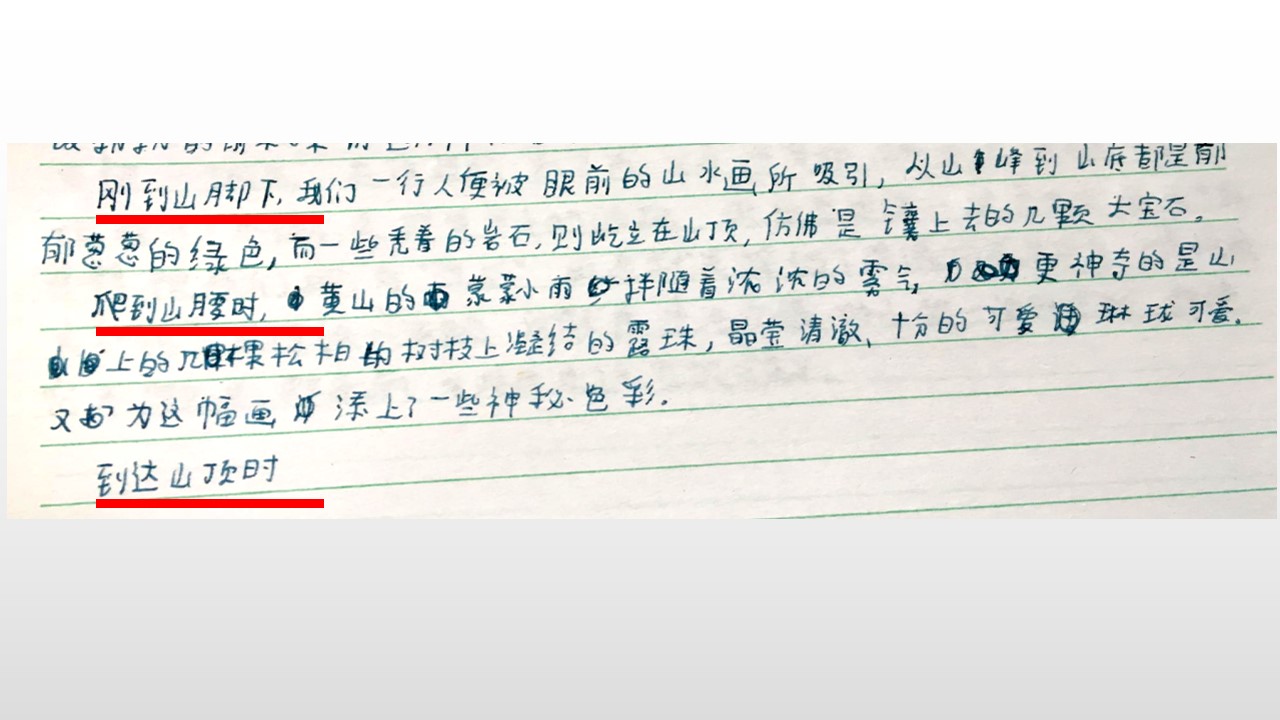 刚到山脚下,我们一行人便被眼前的山水画所吸引,从山峰到山底都是郁
郁葱葱的绿色,而一些秃着的岩石,则屹立在山顶,仿佛是镶上去的几颗大宝石。
爬到山腰时,黄山的蒙蒙小雨拌随着浓浓的雾气,更神奇的是山
上的几棵松柏的树枝上凝结的露珠,晶莹清澈、十分的可爱琳球可爱.
又为这幅画添上了一些神秘色彩.
到达山顶时